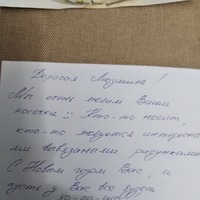 Дорогая Людмила!
Мы очень любим Ваши
носочки :: Кто-то носит,
кто-то любуется интересны
ми вывязанными рисунками.
С Новым годом Вас, и
пусть у Вас все будет